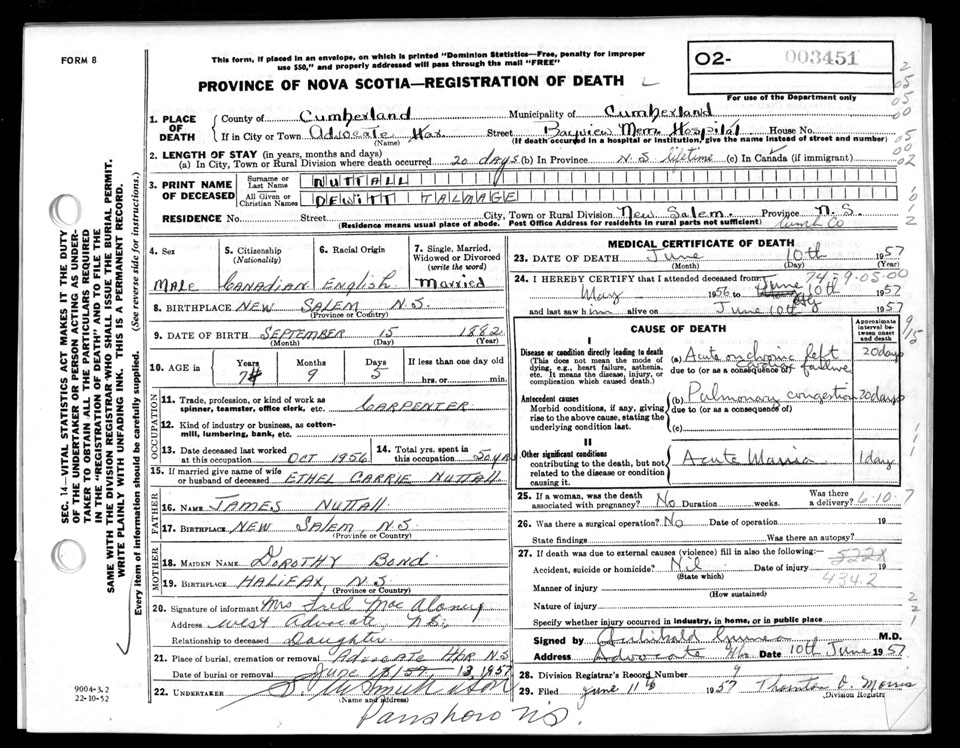 FORM 8
This form, if placed in an envelope, on which is printed "Dominion Statistics—Free, penalty for improper
use $50," and properly addressed will pass through the mail "FREE"
PROVINCE OF NOVA SCOTIA—REGISTRATION OF DEATH 2
O2- 003451
For use of the Department only
1. PLACE OF DEATH
County of Cumberland Municipality of Cumberland
If in City or Town Advocate Har Street Bayview Mem Hospital House No.
(Name) (If death occurred in a hospital or institution, give the name instead of street and number)
2. LENGTH OF STAY (in years, months and days)
(a) In City, Town or Rural Division where death occurred 20 days (b) In Province N.S lifetime (c) In Canada (if immigrant)
3. PRINT NAME OF DECEASED
Surname or Last Name NUTTALL
All Given or Christian Names DEWITT TALMAGE
RESIDENCE No. Street City, Town or Rural Division New Salem Province N.S.
(Residence means usual place of abode. Post Office Address for residents in rural parts not sufficient) Cumb Co
4. Sex
MALE
5. Citizenship (Nationality)
CANADIAN
6. Racial Origin
ENGLISH
7. Single, Married, Widowed or Divorced (write the word)
Married
8. BIRTHPLACE NEW SALEM N.S.
(Province or Country)
9. DATE OF BIRTH SEPTEMBER 15 1882
(Month) (Day) (Year)
10. AGE in Years Months Days If less than one day old
9 5 hrs. or min.
OCCUPATION
11. Trade, profession, or kind of work as spinner, teamster, office clerk, etc. CARPENTER
12. Kind of industry or business, as cotton-mill, lumbering, bank, etc.
13. Date deceased last worked at this occupation OCT 1956
14. Total yrs. spent in this occupation
15. If married give name of wife or husband of deceased ETHEL CARRIE NUTTALL
FATHER
16. NAME JAMES NUTTALL
17. BIRTHPLACE NEW SALEM N.S
(Province or Country)
MOTHER
18. MAIDEN NAME DOROTHY BOND
19. BIRTHPLACE HALIFAX, N.S
(Province or Country)
20. Signature of informant Mrs Fred Mac Aloney
Address West Advocate, N.S.
Relationship to deceased Daughter
21. Place of burial, cremation or removal ADVOCATE HBR N.S
Date of burial or removal June 13 1957
22. UNDERTAKER
(Name and address)
Parrsboro N.S.
MEDICAL CERTIFICATE OF DEATH
23. DATE OF DEATH June 10th 1957
(Month) (Day) (Year)
74-9-05-00
24. I HEREBY CERTIFY that I attended deceased from
May 1956 to June 10th 1957
and last saw him alive on June 10th 1957
CAUSE OF DEATH
Approximate interval between onset and death
I
Disease or condition directly leading to death
(This does not mean the mode of dying, e.g., heart failure, asthenia, etc. It means the disease, injury, or complication which caused death.)
(a) Acute on chronic left cardiac failure 20 days
due to (or as a consequence of)
Antecedent causes
Morbid conditions, if any, giving rise to the above cause, stating the underlying condition last.
(b) Pulmonary congestion 20 days
due to (or as a consequence of)
(c)
II
Other significant conditions
contributing to the death, but not related to the disease or condition causing it.
Acute Mania 1 day
25. If a woman, was the death associated with pregnancy? No Duration weeks. Was there a delivery? 6-10-7
26. Was there a surgical operation? No Date of operation 19
State findings Was there an autopsy?
27. If death was due to external causes (violence) fill in also the following:
Accident, suicide or homicide? Nil Date of injury 19
(State which) 434.2
Manner of injury
(How sustained)
Nature of injury
Specify whether injury occurred in industry, in home, or in public place
Signed by Archibald M.D.
Address Advocate Hbr Date 10th June 1957
28. Division Registrar's Record Number 9
29. Filed June 11th 1957 Thornton O. Morris
Division Registrar
9004-3.2
22-10-52
SEC. 14—VITAL STATISTICS ACT MAKES IT THE DUTY
OF THE UNDERTAKER OR PERSON ACTING AS UNDER-
TAKER TO OBTAIN ALL THE PARTICULARS REQUIRED
IN THE "REGISTRATION OF DEATH" AND TO FILE THE
SAME WITH THE DIVISION REGISTRAR WHO SHALL ISSUE THE BURIAL PERMIT.
WRITE PLAINLY WITH UNFADING INK. THIS IS A PERMANENT RECORD.
Every item of information should be carefully supplied. (See reverse side for instructions.)